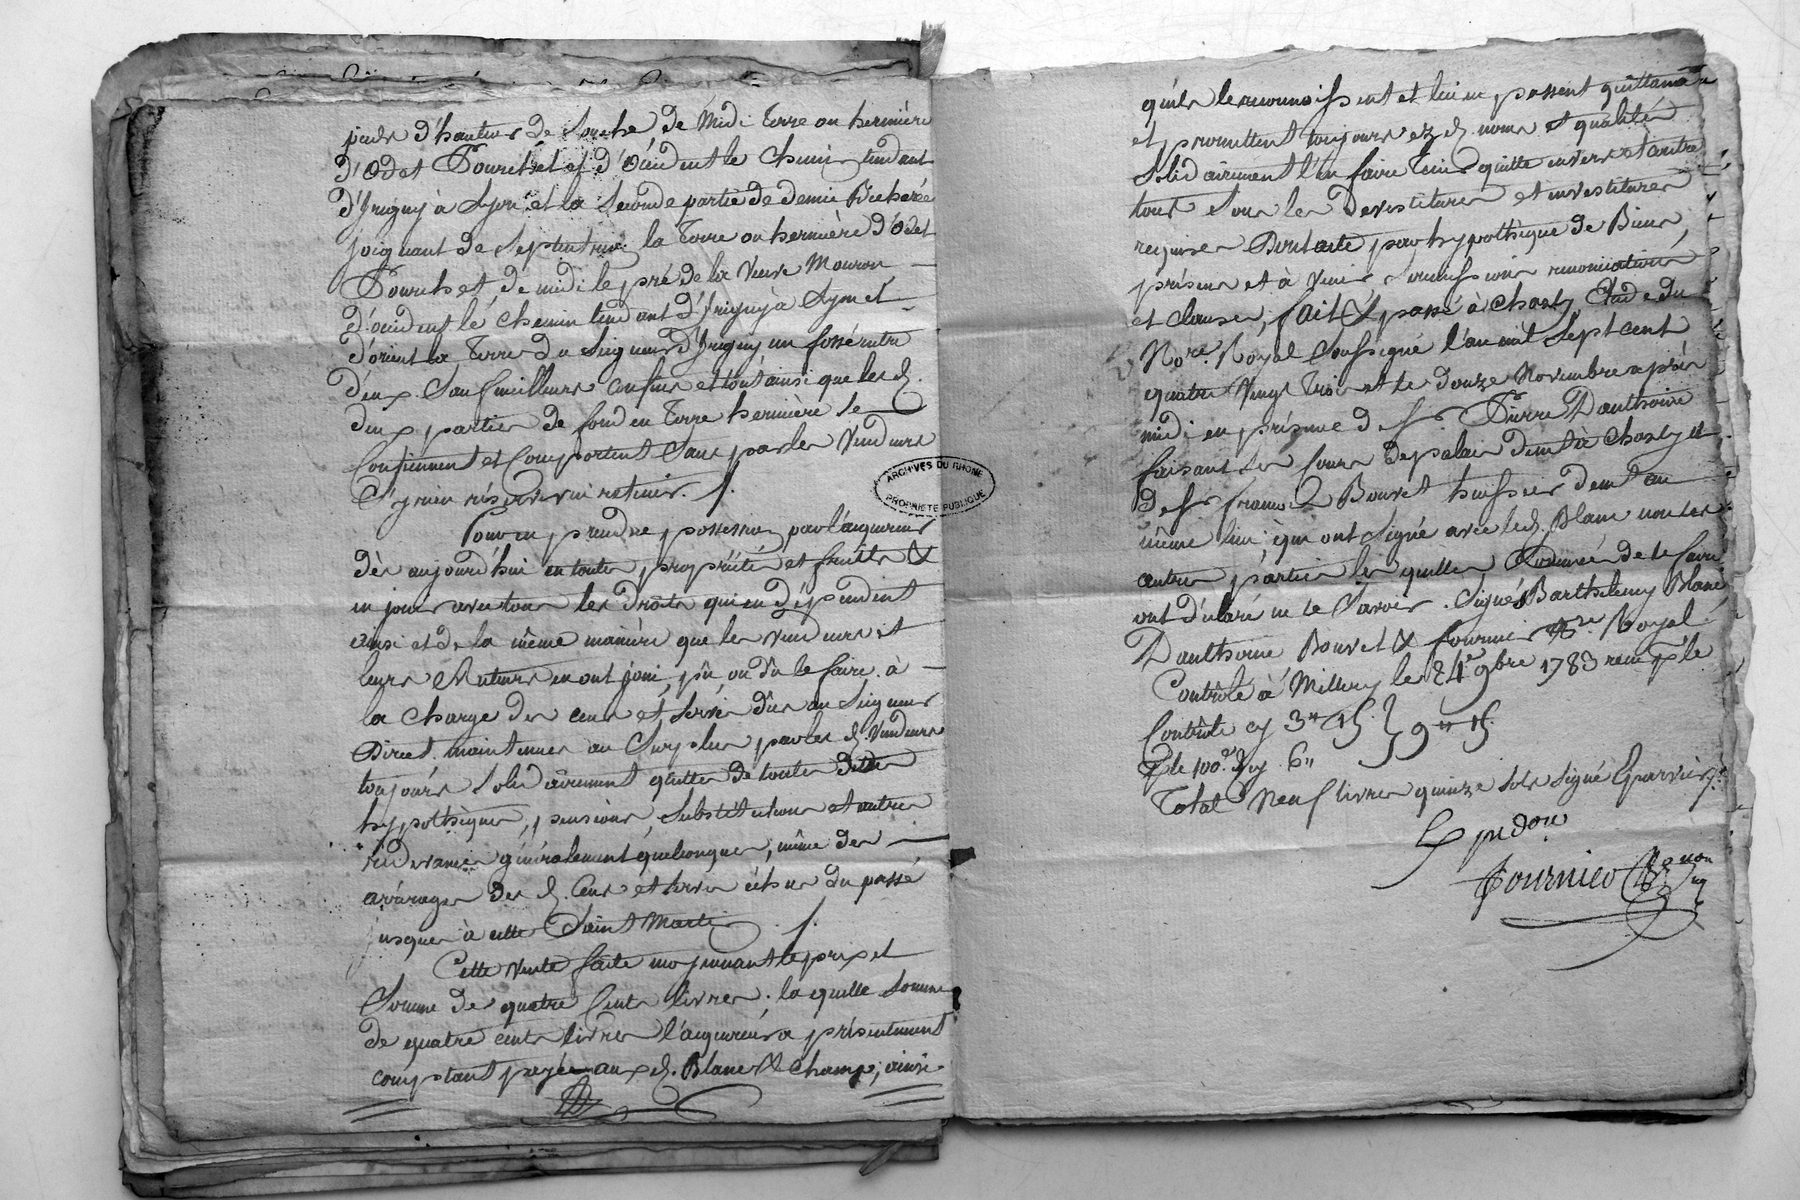 pieds d'hauteur de souche de Midi Terre ou hermière
d'Odet Pourchet et d'occident le chemin tendant
d'Irigny à Lyon et la seconde partie de demie Bicherée
joignant de septentrion la Terre ou hermière d'Odet
Pourchet de midi le pré de la Veuve Mouron
d'occident le chemin tendant d'Irigny à Lyon et
d'orient la Terre du Seigneur d'Irigny un fossé entre
deux Sauf meilleurs confins et tout ainsi que les d.
deux parties de fond en Terre hermière se
Confinent et Comportent Sans par les Vendeurs
s'y rien réserver ni retenir. /.
Pour en prendre possession par l'acquereur
dès aujourd'hui en toute proprièté et fruits &
en jouir avec tous les droits qui en dépendent
ainsi et de la même manière que les vendeurs et
leurs Auteurs en ont joui, pû ou dû le faire. à
la charge des cens et servis dûs au Seigneur
Direct. maintenue au Surplus par les d. Vendeurs
toujours Solidairement quitte de toutes dettes
hypothèques, pensions, Substitutions et autres
redevances généralement quelconques, même des
arrérages des d. Cens et servis échus du passé
jusques à cette Saint Martin ./.
Cette vente faite moyennant le prix et
Somme de quatre Cents livres. la quelle Somme
de quatre cents livres l'acquereur a présentement
comptant payée aux d. Blanc & Champ, ainsi
ARCHIVES DU RHONE
PROPRIETE PUBLIQUE
qu'ils le reconnoissent et lui en passent quittance
et promettent toujours ez d. noms et qualités
Solidairement l'en faire Tenir quitte envers et contre
tous Sous les devestitures et investitures
requises Dont acte par hypothèque de Biens,
présens et à venir Soumissions renonciations
et clauses, fait & passé à Charly Etude du
Nore. Royal Soussigné l'an mil Sept cent
quatre Vingt trois et le douze Novembre après
midi en présence de Sr Pierre Danthoine
faisant les fours de palais demt à Charly et
de Sr francois Bouvet huissier demt au
même lieu qui ont Signé avec led. Blanc non les
autres parties les quelles Sommées de le faire
ont déclaré ne le Savoir. Signés Barthélemy Blanc
Danthoine Bouvet & fournier Nre. Royal
Contrôlé à Millery le 24e 9bre 1783 reçu p le
Contrôle cy 3" 15s. } 9" 15s.
p le 100e. d. cy 6"
Total Neuf livres quinze sols Signé Eparvier /.
Expédon
Fournier